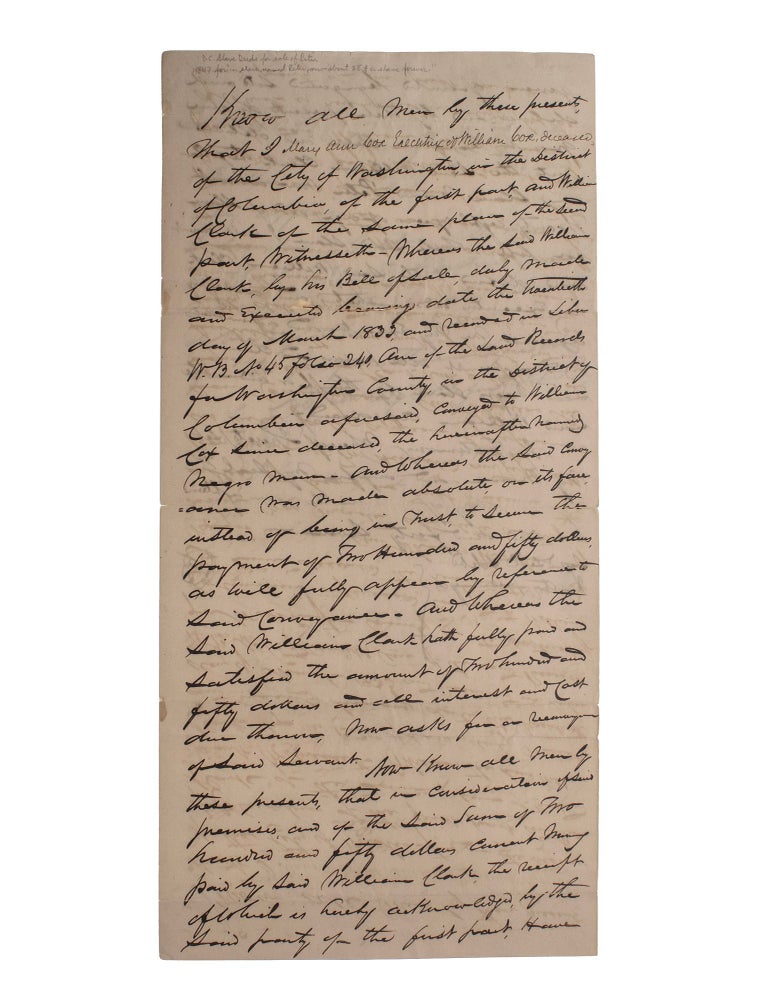 D.C. Slave Deeds for sale of Peter
1837 for a slave named Peter, now about 35 & a slave forever
Know all Men by these presents,
that I Mary Ann Cox Executrix of William Cox, deceased
of the City of Washington in the District
of Columbia, of the first part, and William
Clark of the same place of the Second
part, Witnesseth - Whereas the said William
Clark, by his Bill of Sale, duly made
and Executed bearing date the twentieth
day of March 1833, and recorded in Liber
W.B. No 45 folio 240 of the Land Records
for Washington County, in the District of
Columbia aforesaid, conveyed to William
Cox since deceased, the hereinafter named
Negro man - And Whereas the said Convey
=ance was made absolute, on its face
instead of being in Trust, to secure the
payment of Two Hundred and fifty dollars,
as will fully appear by reference to
said Conveyance - And Whereas the
said William Clark hath fully paid and
satisfied the amount of Two hundred and
fifty dollars and all interest and Cost
due thereon, Now asks for a
of said Servant. Now Know all Men by
these presents, that in consideration of said
premises, and of the said Sum of Two
hundred and fifty dollars current Money
paid by said William Clark, the receipt
of which is hereby acknowledged, by the
said party of the first part, Have